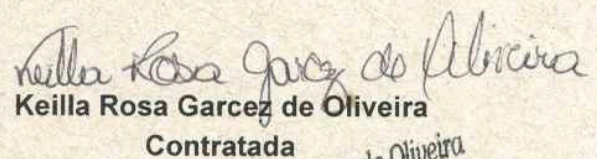 Keilla Rosa Garcez de Oliveira
Keilla Rosa Garcez de Oliveira
Contratada
de Oliveira